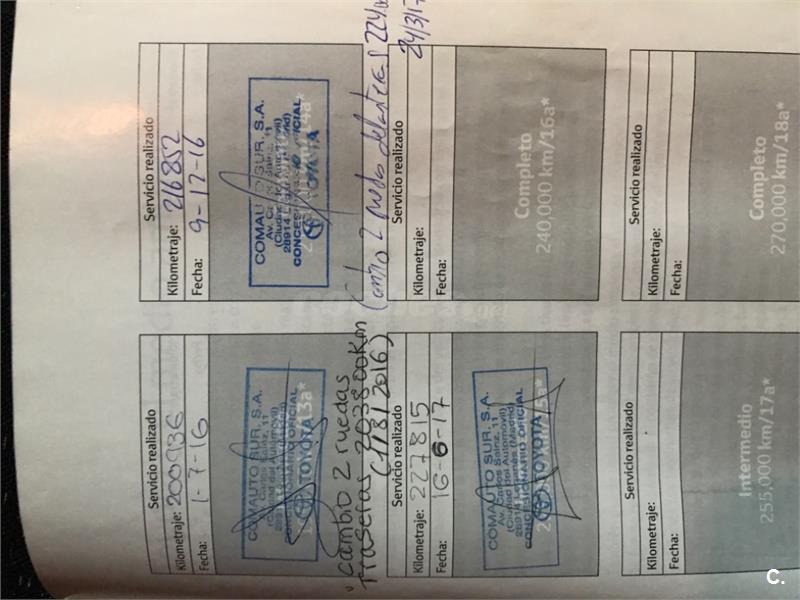 Servicio realizado
Kilometraje: 200936
Fecha: 1-7-16
COMAUTO SUR, S.A.
Av. Carlos Sainz, 11
(Ciudad del Automóvil)
CONCESIONARIO OFICIAL
TOYOTA
cambio 2 ruedas
traseras 203800Km
(1/8/2016)
Servicio realizado
Kilometraje: 216852
Fecha: 9-12-16
COMAUTO SUR, S.A.
Av. Carlos Sainz, 11
(Ciudad del Automóvil)
28914 Leganés (Madrid)
CONCESIONARIO OFICIAL
TOYOTA
Cambio 2 ruedas delanteras
24/3/17
Servicio realizado
Kilometraje: 227815
Fecha: 16-6-17
COMAUTO SUR, S.A.
Av. Carlos Sainz, 11
(Ciudad del Automóvil)
28914 Leganés (Madrid)
CONCESIONARIO OFICIAL
TOYOTA
Servicio realizado
Kilometraje:
Fecha:
Completo
240,000 km/16a*
Servicio realizado
Kilometraje:
Fecha:
Intermedio
255,000 km/17a*
Servicio realizado
Kilometraje:
Fecha:
Completo
270,000 km/18a*
C.